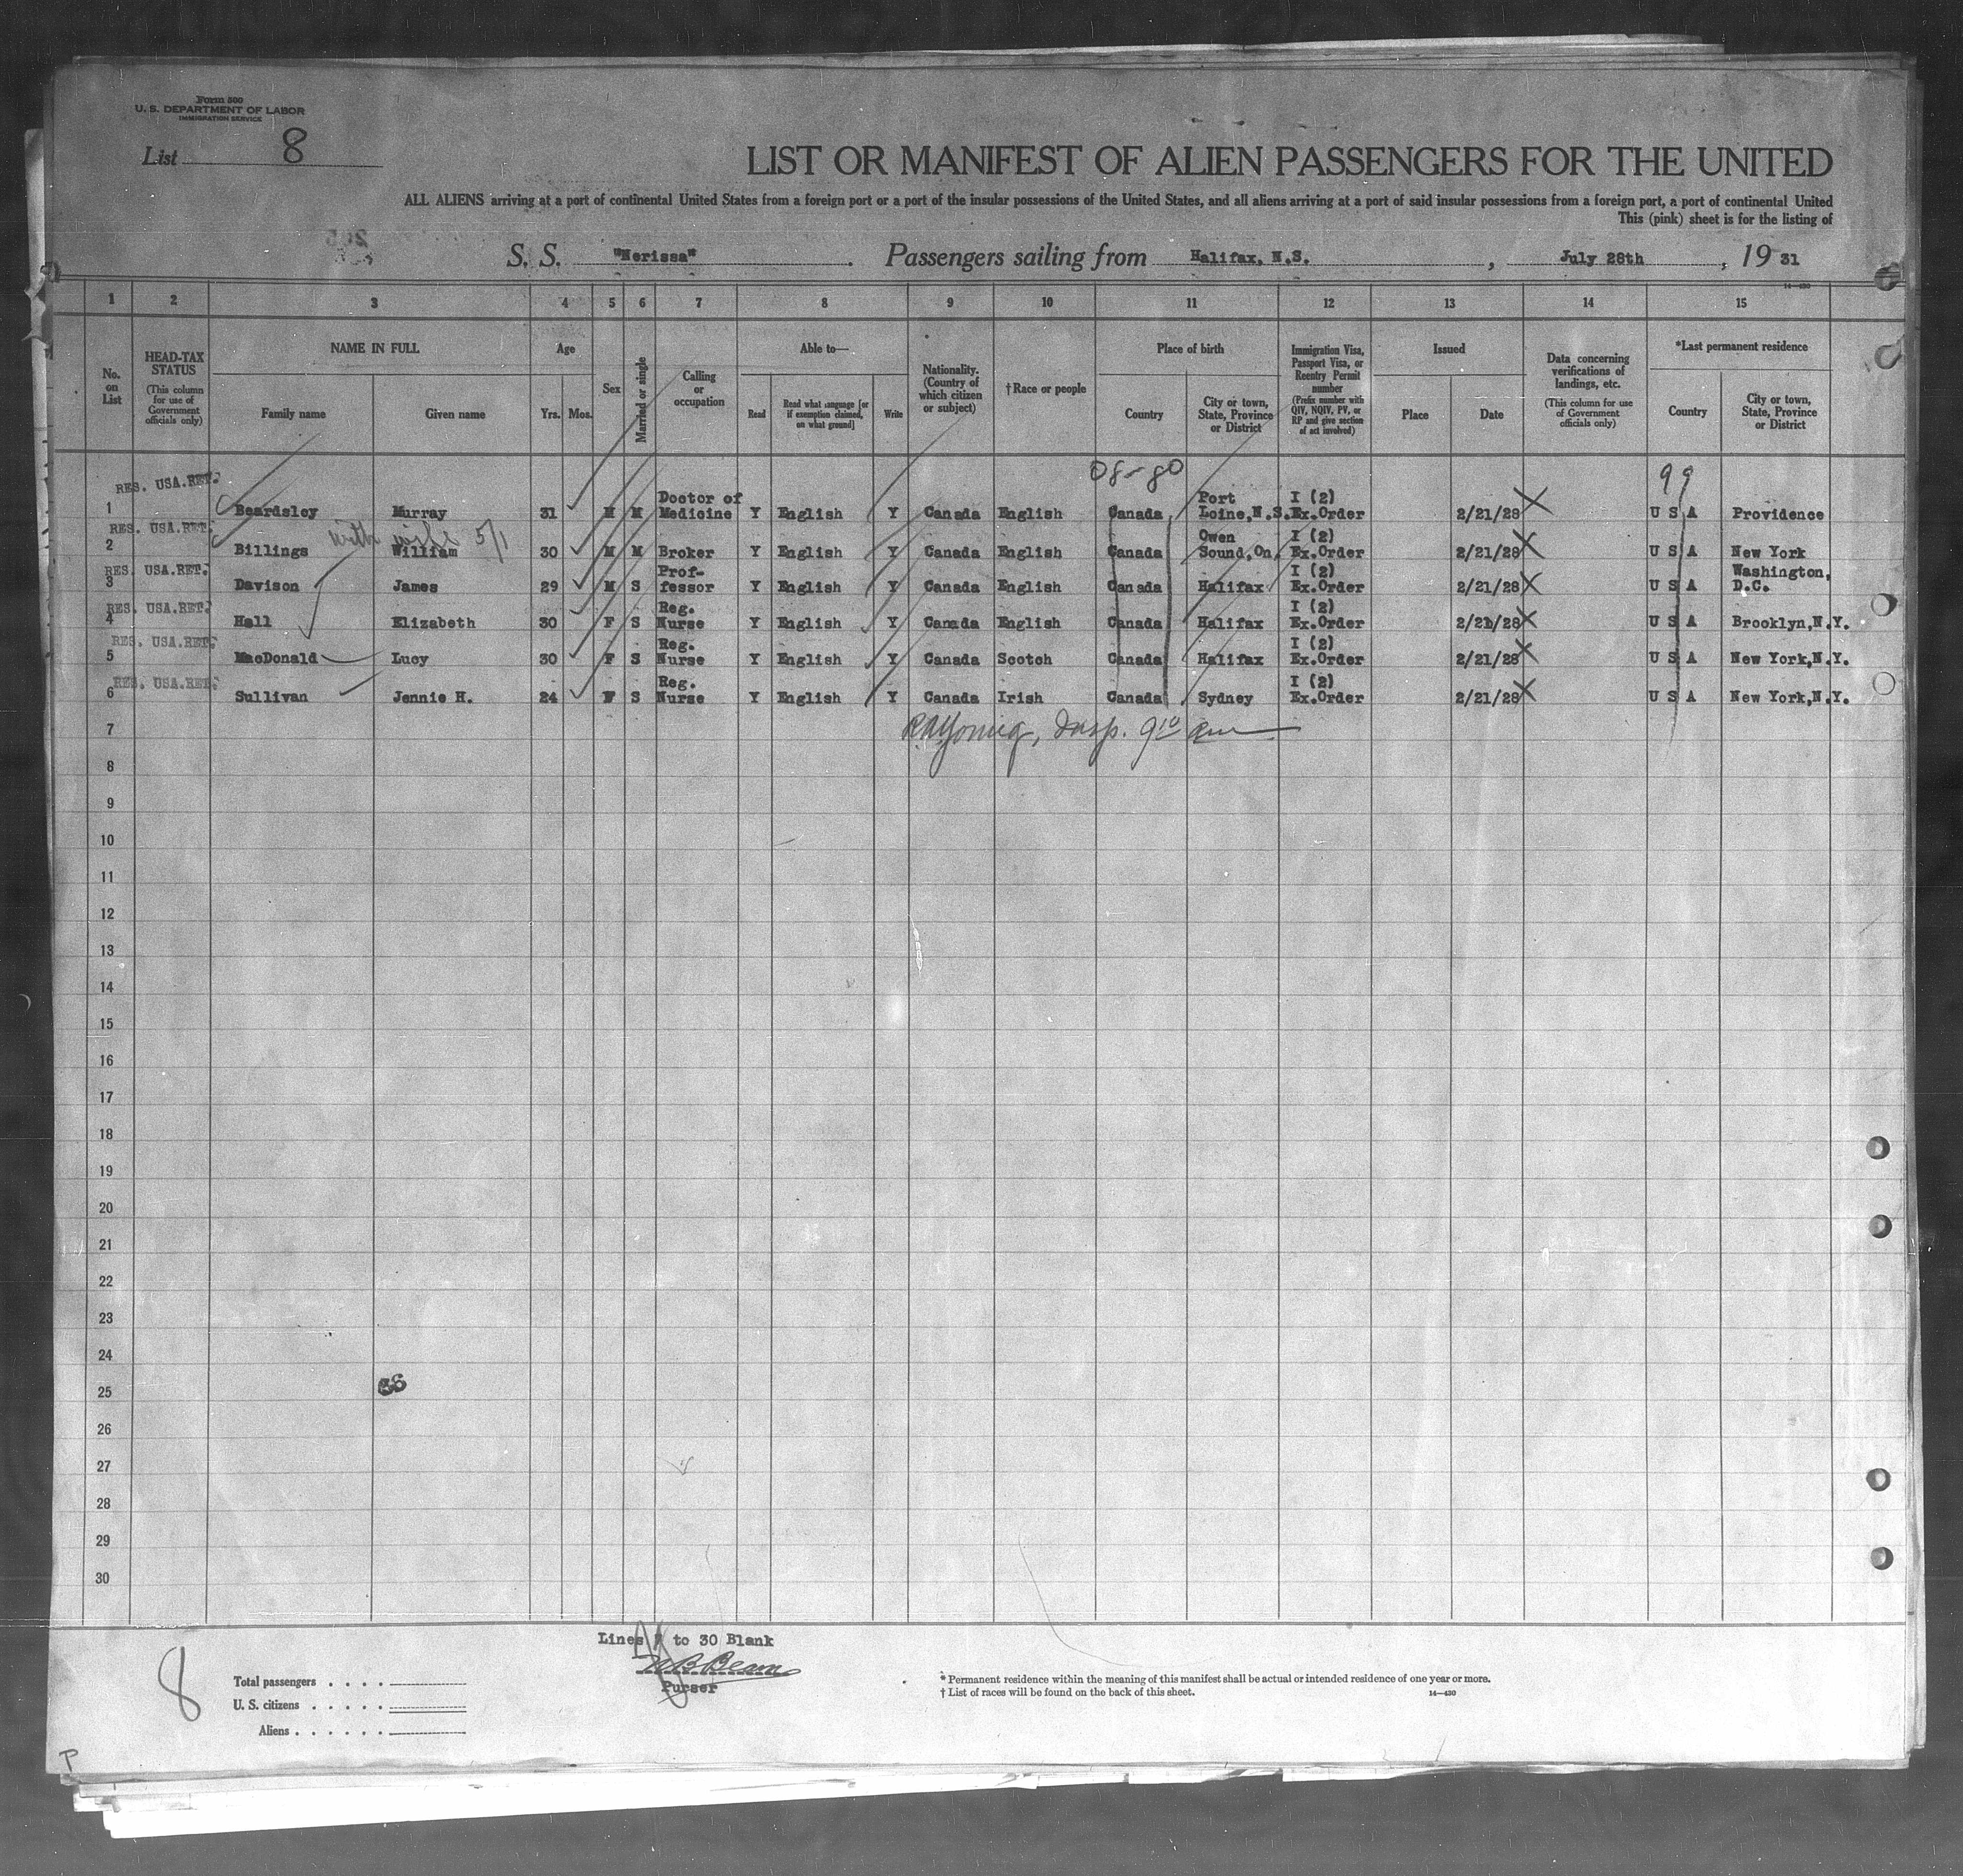 Form 500
U. S. DEPARTMENT OF LABOR
IMMIGRATION SERVICE
List 8
LIST OR MANIFEST OF ALIEN PASSENGERS FOR THE UNITED
ALL ALIENS arriving at a port of continental United States from a foreign port or a port of the insular possessions of the United States, and all aliens arriving at a port of said insular possessions from a foreign port, a port of continental United
This (pink) sheet is for the listing of
S. S. "Nerissa". Passengers sailing from Halifax, N.S., July 28th, 19 31
14-430
1 2 3 4 5 6 7 8 9 10 11 12 13 14 15
No. on List
HEAD-TAX STATUS (This column for use of Government officials only)
NAME IN FULL
Family name Given name
Age
Yrs. Mos.
Sex
Married or single
Calling or occupation
Able to—
Read
Read what language [or if exemption claimed, on what ground]
Write
Nationality. (Country of which citizen or subject)
†Race or people
Place of birth
Country
City or town, State, Province or District
Immigration Visa, Passport Visa, or Reentry Permit number (Prefix number with QIV, NQIV, PV, or RP and give section of act involved)
Issued
Place Date
Data concerning verifications of landings, etc. (This column for use of Government officials only)
*Last permanent residence
Country
City or town, State, Province or District
08-80 99
RES. USA.RET.
1 Beardsley Murray 31 M M Doctor of Medicine Y English Y Canada English Canada Port Loine, N.S. I (2) Ex.Order 2/21/28 U S A Providence
RES. USA.RET.
with wife 5/1
2 Billings William 30 M M Broker Y English Y Canada English Canada Owen Sound, On. I (2) Ex.Order 2/21/28 U S A New York
RES. USA.RET.
3 Davison James 29 M S Prof-fessor Y English Y Canada English Canada Halifax I (2) Ex.Order 2/21/28 U S A Washington, D.C.
RES. USA.RET.
4 Hall Elizabeth 30 F S Reg. Nurse Y English Y Canada English Canada Halifax I (2) Ex.Order 2/21/28 U S A Brooklyn,N.Y.
RES. USA.RET.
5 MacDonald Lucy 30 F S Reg. Nurse Y English Y Canada Scotch Canada Halifax I (2) Ex.Order 2/21/28 U S A New York,N.Y.
RES. USA.RET.
6 Sullivan Jennie H. 24 F S Reg. Nurse Y English Y Canada Irish Canada Sydney I (2) Ex.Order 2/21/28 U S A New York,N.Y.
7 Insp. 9 10 am
8
9
10
11
12
13
14
15
16
17
18
19
20
21
22
23
24
25
26
27
28
29
30
Lines 7 to 30 Blank
Purser
8
Total passengers
U. S. citizens
Aliens
* Permanent residence within the meaning of this manifest shall be actual or intended residence of one year or more.
† List of races will be found on the back of this sheet.
14-430